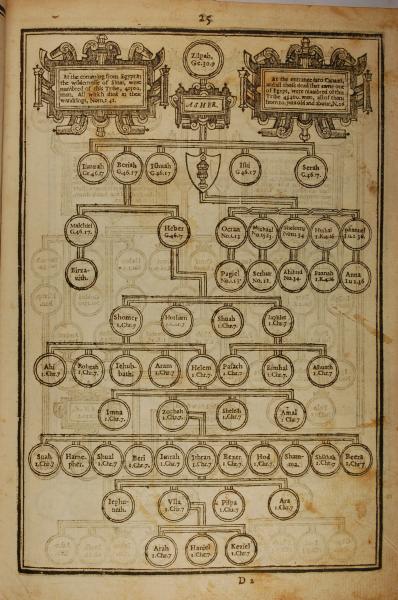 25
Zilpah,
Ge.30.9
At the comming from Egypt in
the wildernesse of Sinai, were
numbred of this Tribe, 41500.
men, All which died in their
wandrings, Num.1.41.
ASHER.
At the entrance into Canaan,
and all these dead that came out
of Egypt, were numbred of this
Tribe
Gē.46.17
Beriah
G.46.17
Ishuah
G.46.17
Isui
G.46.17
Serah
G.46.17.
Malchiel
G.46.17.
Heber
G.46.17
Ocran
No.1.13
Michael
Hushai
1.K.4.16
Phanuel
Lu.2.36.
Birza-
vith.
Pagiel
No.1.13
Sethur
No.13.
Ahihud
No.34.
Baanah
1.K.4.16
Anna
Lu.2.36
Shomer
1.Chr.7
Hotham
1.Chr.7
Shuah
1.Chr.7.
Japhlet
1.Chr.7
Ahi
1.Chr.7
Rohgah
1.Chr.7
Iehub-
bath:
Aram
1.Chr.7
Helem
1.Chr.7
Pasach
1.Chr.7
Bimhal
1.Chr.7
Ashuath
1.Chr.7
Imna
1.Chr.7
Zophah
1.Chr.7
Shelesh
1.Chr.7
Amal
1.Chr.7
Suah
1.Chr.7
Harne-
pher.
Shual
1.Chr.7
Beri
1.Chr.7
Imrah
1.Chr.7
Ithran
1.Chr.7
Bezer
1.Chr.7
Hod
1.Chr.7
Sham-
ma.
Shilshah
1.Chr.7
Beera
1.Chr.7
Iephu-
nnah.
Vlla
1.Chr.7
Pispa
1.Chr.7
Ara
1.Chr.7
Arah
1.Chr.7
Haniel
1.Chr.7
Rezie1
1.Chr.7
D 2